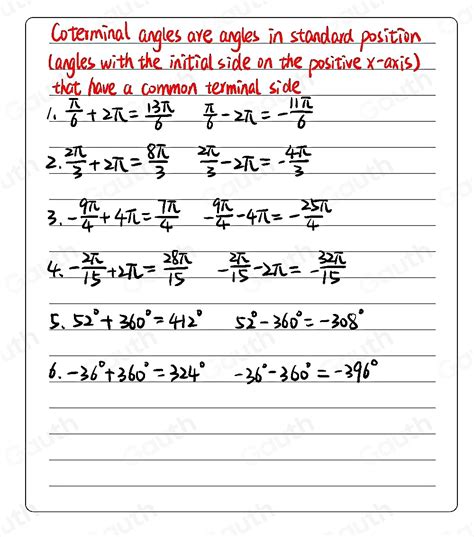 Coterminal angles are angles in standard position
(angles with the initial side on the positive x-axis)
that have a common terminal side
1. π/6 + 2π = 13π/6 π/6 - 2π = -11π/6
2. 2π/3 + 2π = 8π/3 2π/3 - 2π = -4π/3
3. -9π/4 + 4π = 7π/4 -9π/4 - 4π = -25π/4
4. -2π/15 + 2π = 28π/15 -2π/15 - 2π = -32π/15
5. 52° + 360° = 412° 52° - 360° = -308°
6. -36° + 360° = 324° -36° - 360° = -396°